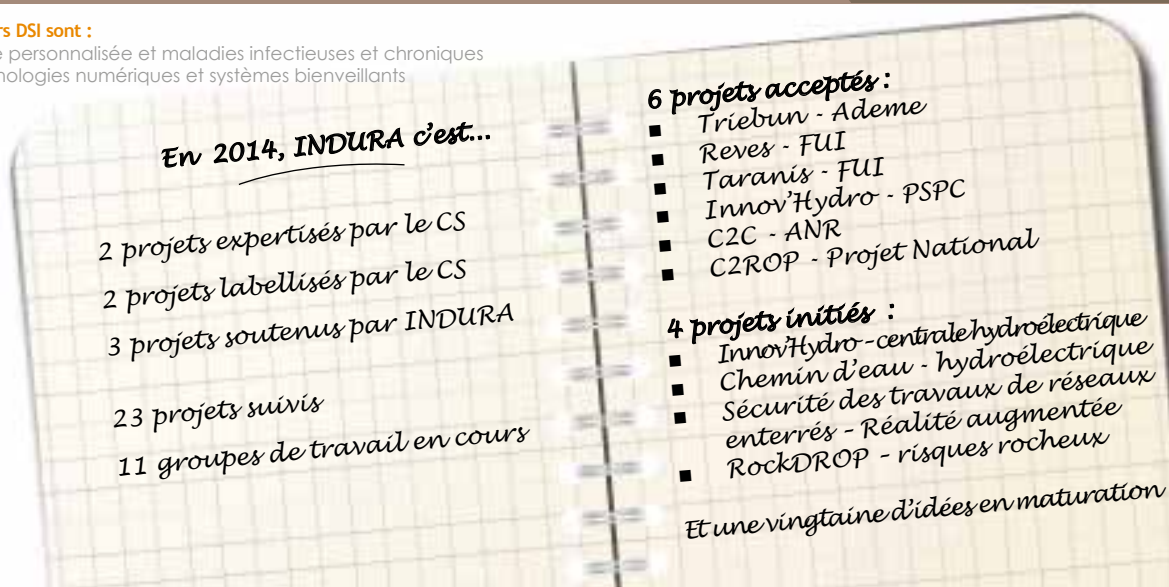 rs DSI sont :
personnalisée et maladies infectieuses et chroniques
nologies numériques et systèmes bienveillants
En 2014, INDURA c'est...
2 projets expertisés par le CS
2 projets labellisés par le CS
3 projets soutenus par INDURA
23 projets suivis
11 groupes de travail en cours
6 projets acceptés :
▪ Triebun - Ademe
▪ Reves - FUI
▪ Taranis - FUI
▪ Innov'Hydro - PSPC
▪ C2C - ANR
▪ C2ROP - Projet National
4 projets initiés :
▪ Innov'Hydro – centrale hydroélectrique
▪ Chemin d'eau - hydroélectrique
▪ Sécurité des travaux de réseaux
enterrés – Réalité augmentée
▪ RockDROP – risques rocheux
Et une vingtaine d'idées en maturation